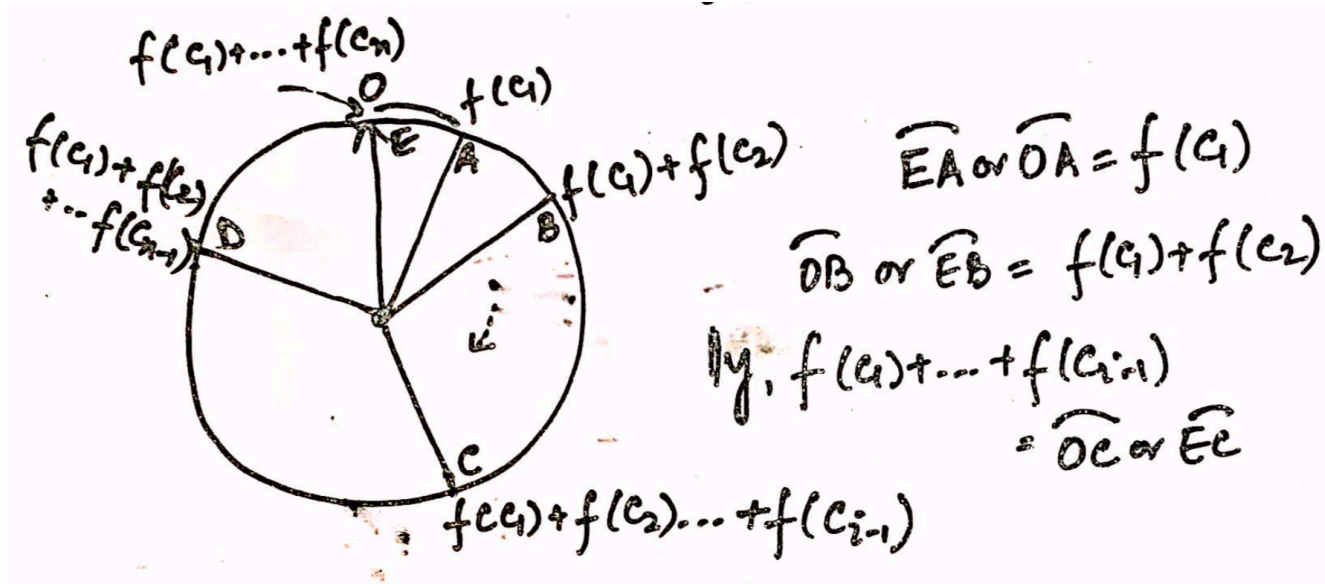 f(C₁)+...+f(Cₙ)
O
f(C₁)
E
A
f(C₁)+f(C₂)
B
f(C₁)+f(C₂)
+...f(Cₙ₋₁)
D
C
f(C₁)+f(C₂)...+f(Cᵢ₋₁)
EA or OA = f(C₁)
OB or EB = f(C₁)+f(C₂)
lly, f(C₁)+...+f(Cᵢ₋₁)
= OC or EC